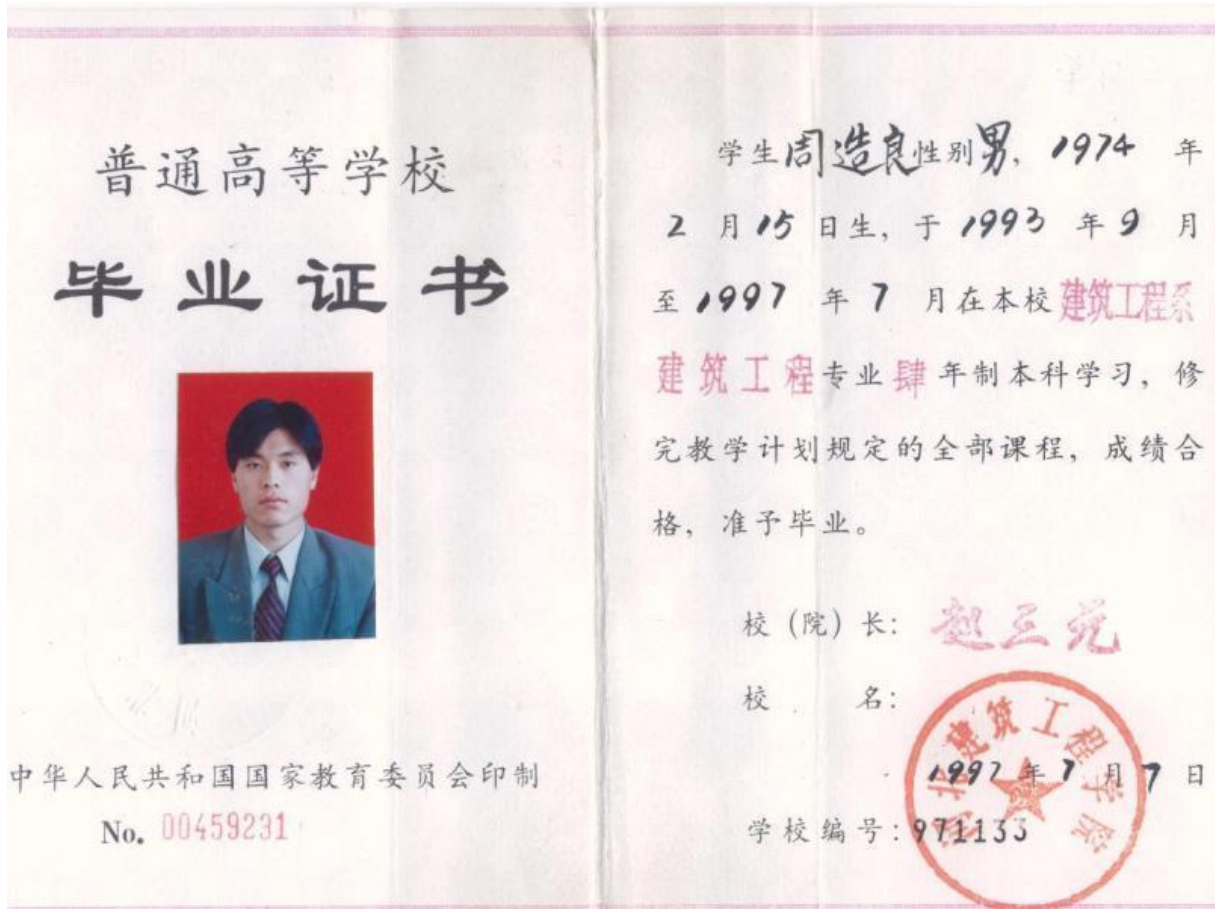 普通高等学校
毕业证书
中华人民共和国国家教育委员会印制
No. 00459231
学生周造良性别男，1974 年
2 月 15 日生，于 1993 年 9 月
至 1997 年 7 月在本校建筑工程系
建筑工程专业肆年制本科学习，修
完教学计划规定的全部课程，成绩合
格，准予毕业。
校（院）长：赵三元
校 名：
河北建筑工程学院
1997 年 7 月 7 日
学校编号：971133